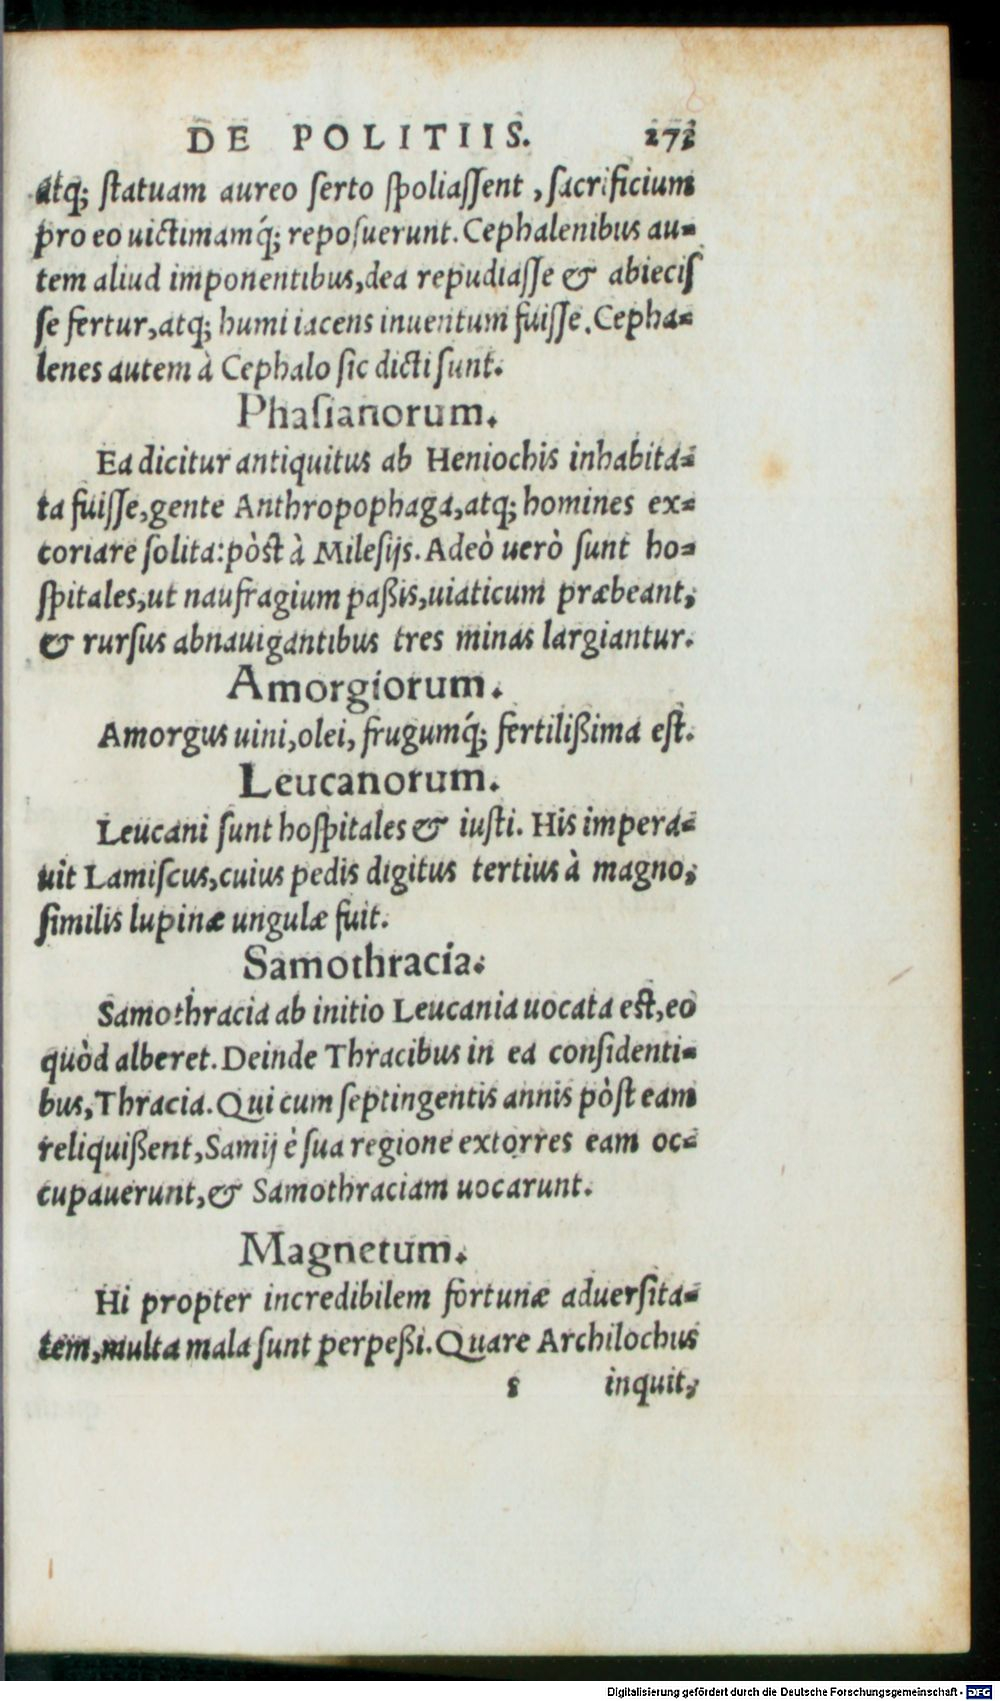 DE POLITIIS. 273
atq; statuam aureo serto spoliassent, sacrificium
pro eo uictimamq́; reposuerunt. Cephalenibus au-
tem aliud imponentibus, dea repudiasse & abiecis
se fertur, atq; humi iacens inuentum fuisse. Cepha-
lenes autem à Cephalo sic dicti sunt.
Phasianorum.
Ea dicitur antiquitus ab Heniochis inhabita-
ta fuisse, gente Anthropophaga, atq; homines ex-
coriare solita: pòst à Milesijs. Adeò uerò sunt ho-
spitales, ut naufragium paßis, uiaticum præbeant,
& rursus abnauigantibus tres minas largiantur.
Amorgiorum.
Amorgus uini, olei, frugumq́; fertilißima est.
Leucanorum.
Leucani sunt hospitales & iusti. His impera-
uit Lamiscus, cuius pedis digitus tertius à magno,
similis lupinæ ungulæ fuit.
Samothracia.
Samothracia ab initio Leucania uocata est, eo
quòd alberet. Deinde Thracibus in ea considenti-
bus, Thracia. Qui cum septingentis annis pòst eam
reliquißent, Samij è sua regione extorres eam oc-
cupauerunt, & Samothraciam uocarunt.
Magnetum.
Hi propter incredibilem fortunæ aduersita-
tem, multa mala sunt perpeßi. Quare Archilochus
s inquit,
Digitalisierung gefördert durch die Deutsche Forschungsgemeinschaft - DFG